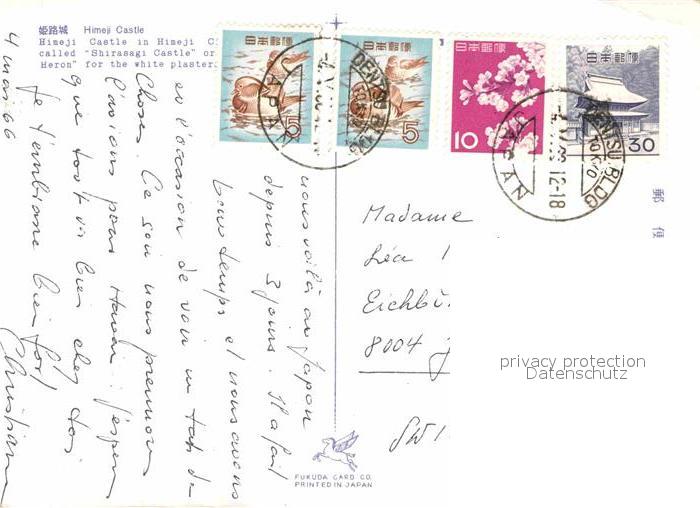 姫路城 Himeji Castle
Himeji Castle in Himeji C
called "Shirasagi Castle" or
Heron" for the white plaster
日本郵便
5
日本郵便
5
日本郵便
10
日本郵便
30
JAPAN
DENTSU BLDG
TOKYO
JAPAN
12-18
DENTSU BLDG
TOKYO
郵便
4 mai 66
nous voilà au Japon
depuis 3 jours. Il a fait
beau temps et nous avons
eu l'occasion de voir un tas de
choses. Ce soir nous prenons
l'avion pour Hawaii. J'espère
que tout va bien chez toi
Je t'embrasse bien fort
Christiane
Madame
Léa
Eichbü
8004
SWI
privacy protection
Datenschutz
FUKUDA CARD CO.
PRINTED IN JAPAN